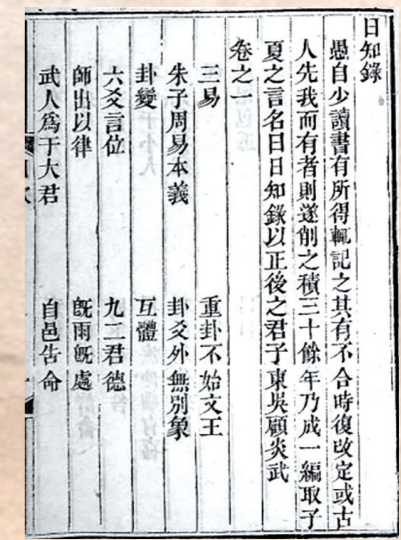 日知錄
愚自少讀書有所得輒記之其有不合時復改定或古
人先我而有者則遂削之積三十餘年乃成一編取子
夏之言名曰日知錄以正後之君子東吳顧炎武
卷之一
三易　重卦不始文王
朱子周易本義　卦爻外無別象
卦變　互體
六爻言位　九二君德
師出以律　旣雨旣處
武人爲于大君　自邑告命